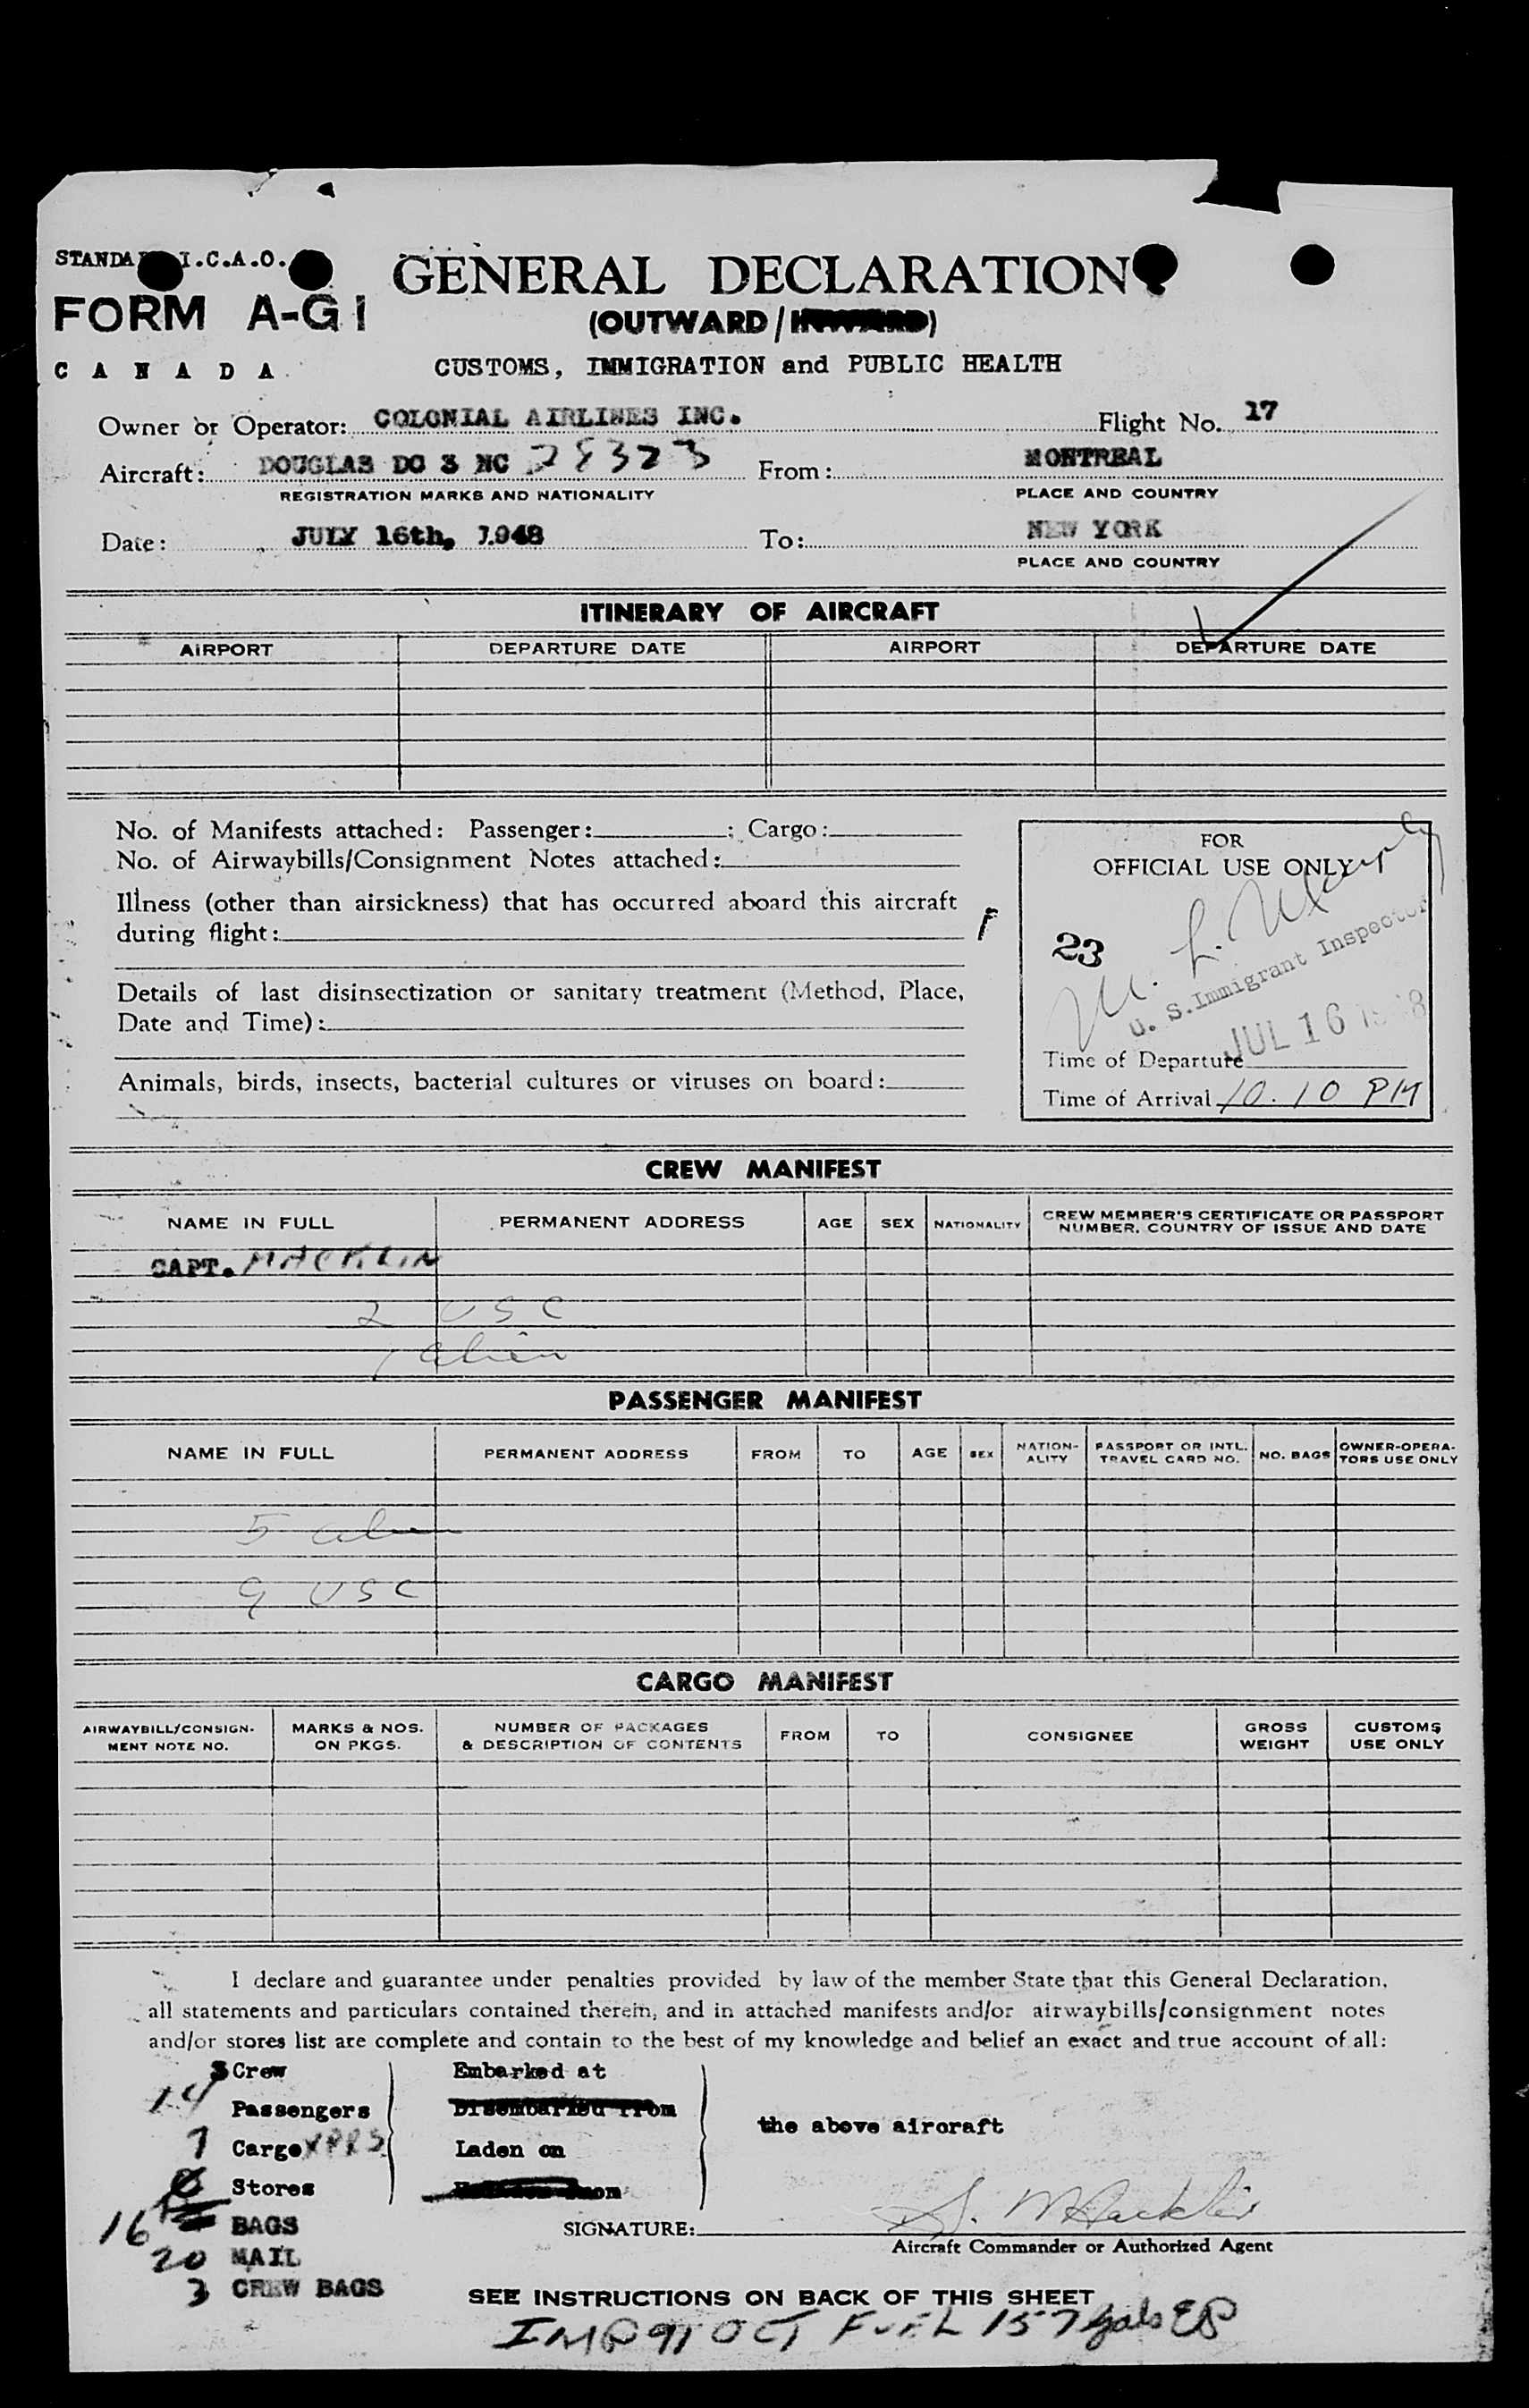 I.C.A.O.
FORM A-G1
CANADA
GENERAL DECLARATION
(OUTWARD/
CUSTOMS, IMMIGRATION and PUBLIC HEALTH
Owner or Operator: COLONIAL AIRLINES INC. Flight No. 17
Aircraft: DOUGLAS DC 3 NC 28323 From: MONTREAL
REGISTRATION MARKS AND NATIONALITY PLACE AND COUNTRY
Date: JULY 16th, 1948 To: NEW YORK
PLACE AND COUNTRY
ITINERARY OF AIRCRAFT
AIRPORT DEPARTURE DATE AIRPORT DEPARTURE DATE
No. of Manifests attached: Passenger: ; Cargo:
No. of Airwaybills/Consignment Notes attached:
Illness (other than airsickness) that has occurred aboard this aircraft
during flight:
Details of last disinsectization or sanitary treatment (Method, Place,
Date and Time):
Animals, birds, insects, bacterial cultures or viruses on board:
FOR
OFFICIAL USE ONLY
23
U. S. Immigrant Inspector
JUL 16
Time of Departure
Time of Arrival 10.10 PM
CREW MANIFEST
NAME IN FULL PERMANENT ADDRESS AGE SEX NATIONALITY CREW MEMBER'S CERTIFICATE OR PASSPORT
NUMBER, COUNTRY OF ISSUE AND DATE
CAPT. MACKLIN
2 USC
1 alien
PASSENGER MANIFEST
NAME IN FULL PERMANENT ADDRESS FROM TO AGE SEX NATION-
ALITY PASSPORT OR INTL.
TRAVEL CARD NO. NO. BAGS OWNER-OPERA-
TORS USE ONLY
5 alien
9 USC
CARGO MANIFEST
AIRWAYBILL/CONSIGN-
MENT NOTE NO. MARKS & NOS.
ON PKGS. NUMBER OF PACKAGES
& DESCRIPTION OF CONTENTS FROM TO CONSIGNEE GROSS
WEIGHT CUSTOMS
USE ONLY
I declare and guarantee under penalties provided by law of the member State that this General Declaration,
all statements and particulars contained therein, and in attached manifests and/or airwaybills/consignment notes
and/or stores list are complete and contain to the best of my knowledge and belief an exact and true account of all:
3 Crew Embarked at
14 Passengers
the above aircraft
7 Cargo XPRS Laden on
Stores
16 BAGS
SIGNATURE: S. Macklin
Aircraft Commander or Authorized Agent
20 MAIL
3 CREW BAGS
SEE INSTRUCTIONS ON BACK OF THIS SHEET
IMP 91 OCT FUEL 157 gals